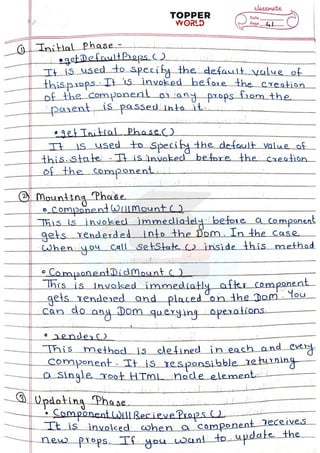 TOPPER
WORLD
classmate
Date
Page 41
① Initial Phase -
• getDefaultProps ( )
It is used to specify the default value of
this.props. It is invoked before the creation
of the component or any props from the
parent is passed into it.
• get Initial Phase ( )
It is used to specify the default value of
this.state. It is invoked before the creation
of the component.
② Mounting Phase
• Component Will Mount ( )
This is invoked immediately before a component
gets renderded into the Dom. In the case
when you call setState () inside this method
• ComponentDidMount ( )
This is invoked immediatly after component
gets rendered and placed on the Dom. You
can do any Dom querying operations.
• render()
This method is defined in each and every
Component. It is responsibble returning
a single root HTML node element.
③ Updating Phase.
• Component Will Recieve Props ( )
It is invoked when a component receives
new props. If you want to update the